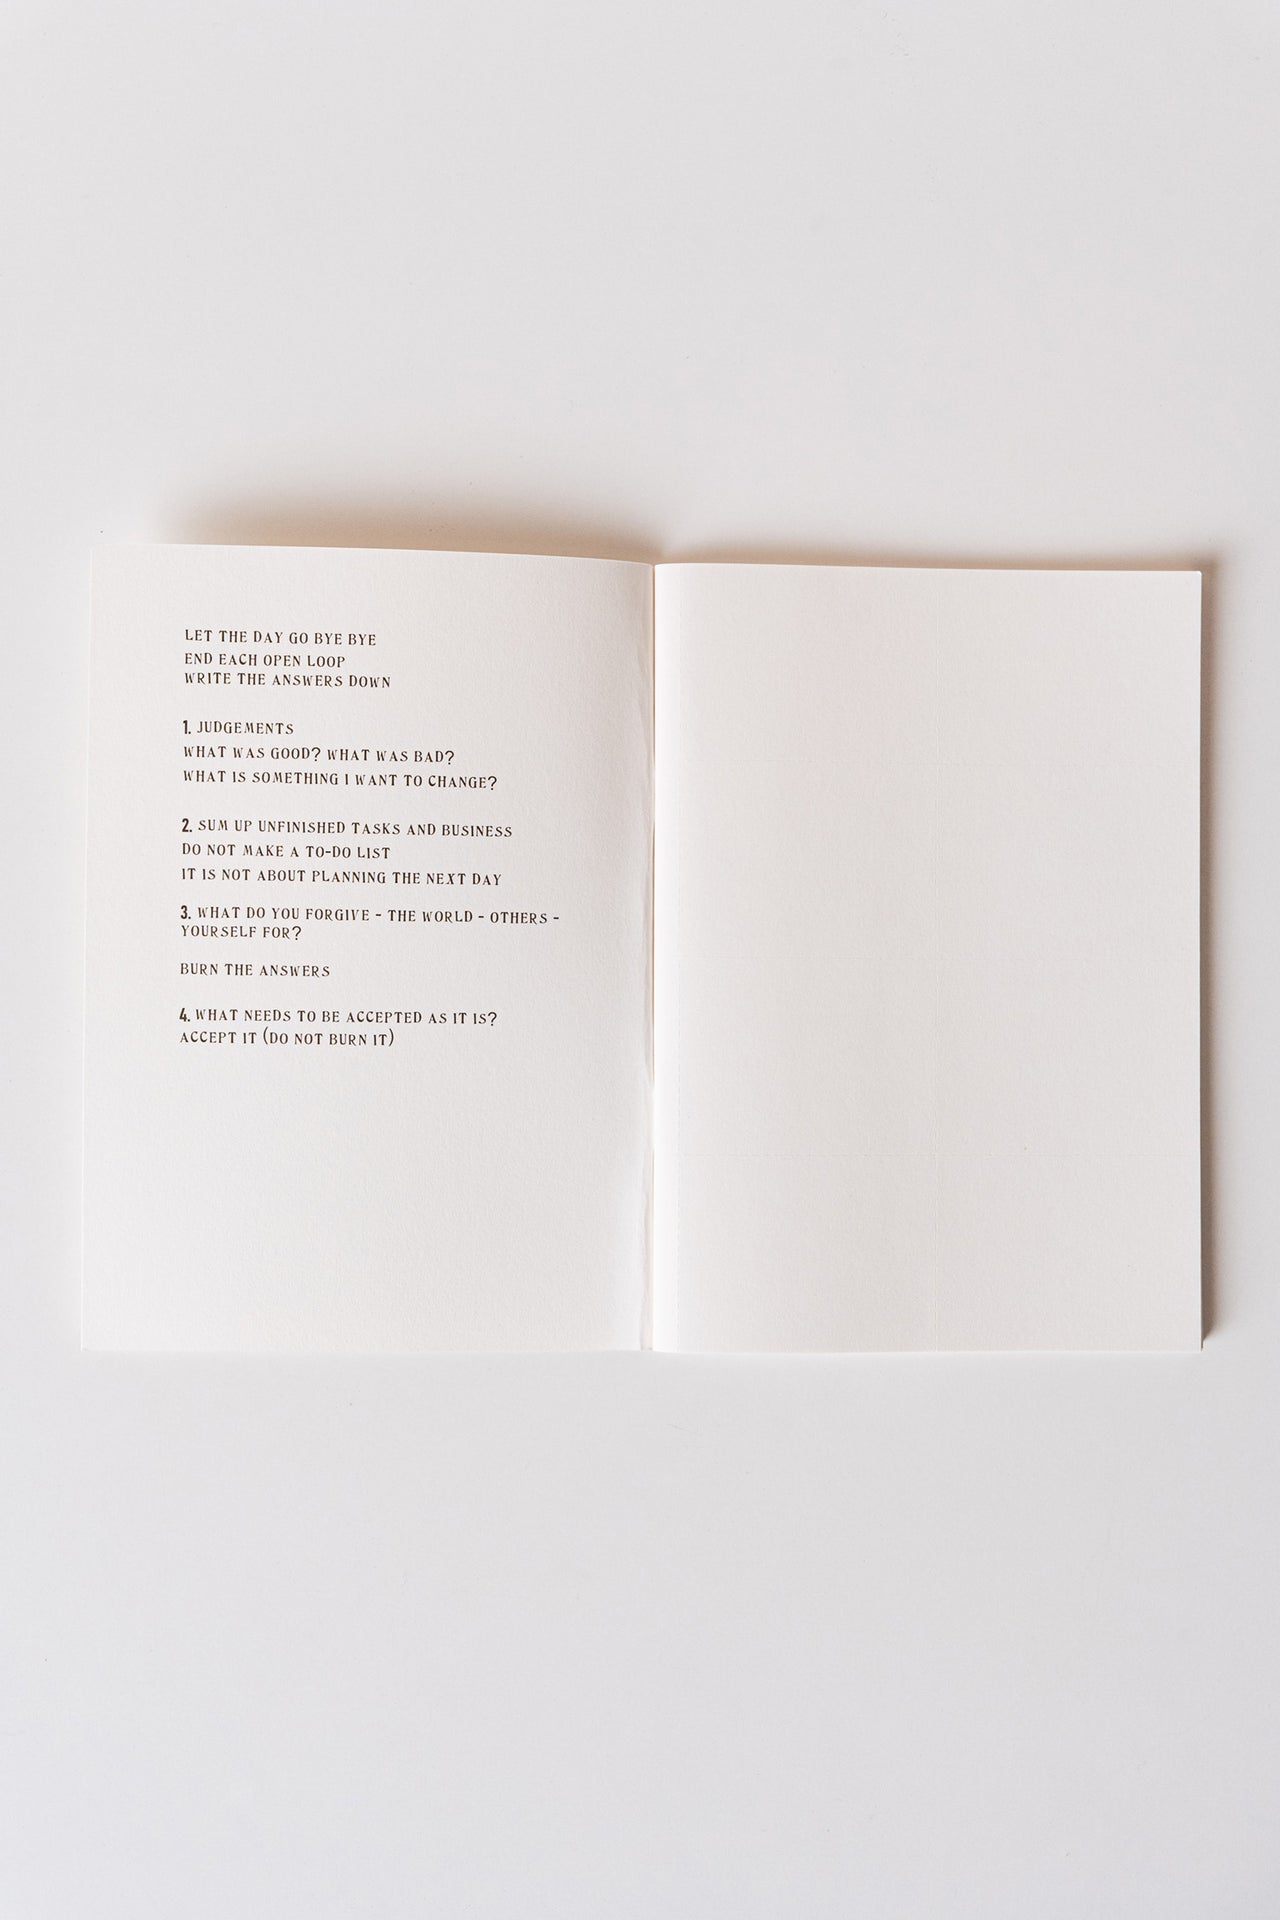 LET THE DAY GO BYE BYE
END EACH OPEN LOOP
WRITE THE ANSWERS DOWN
1. JUDGEMENTS
WHAT WAS GOOD? WHAT WAS BAD?
WHAT IS SOMETHING I WANT TO CHANGE?
2. SUM UP UNFINISHED TASKS AND BUSINESS
DO NOT MAKE A TO-DO LIST
IT IS NOT ABOUT PLANNING THE NEXT DAY
3. WHAT DO YOU FORGIVE - THE WORLD - OTHERS -
YOURSELF FOR?
BURN THE ANSWERS
4. WHAT NEEDS TO BE ACCEPTED AS IT IS?
ACCEPT IT (DO NOT BURN IT)